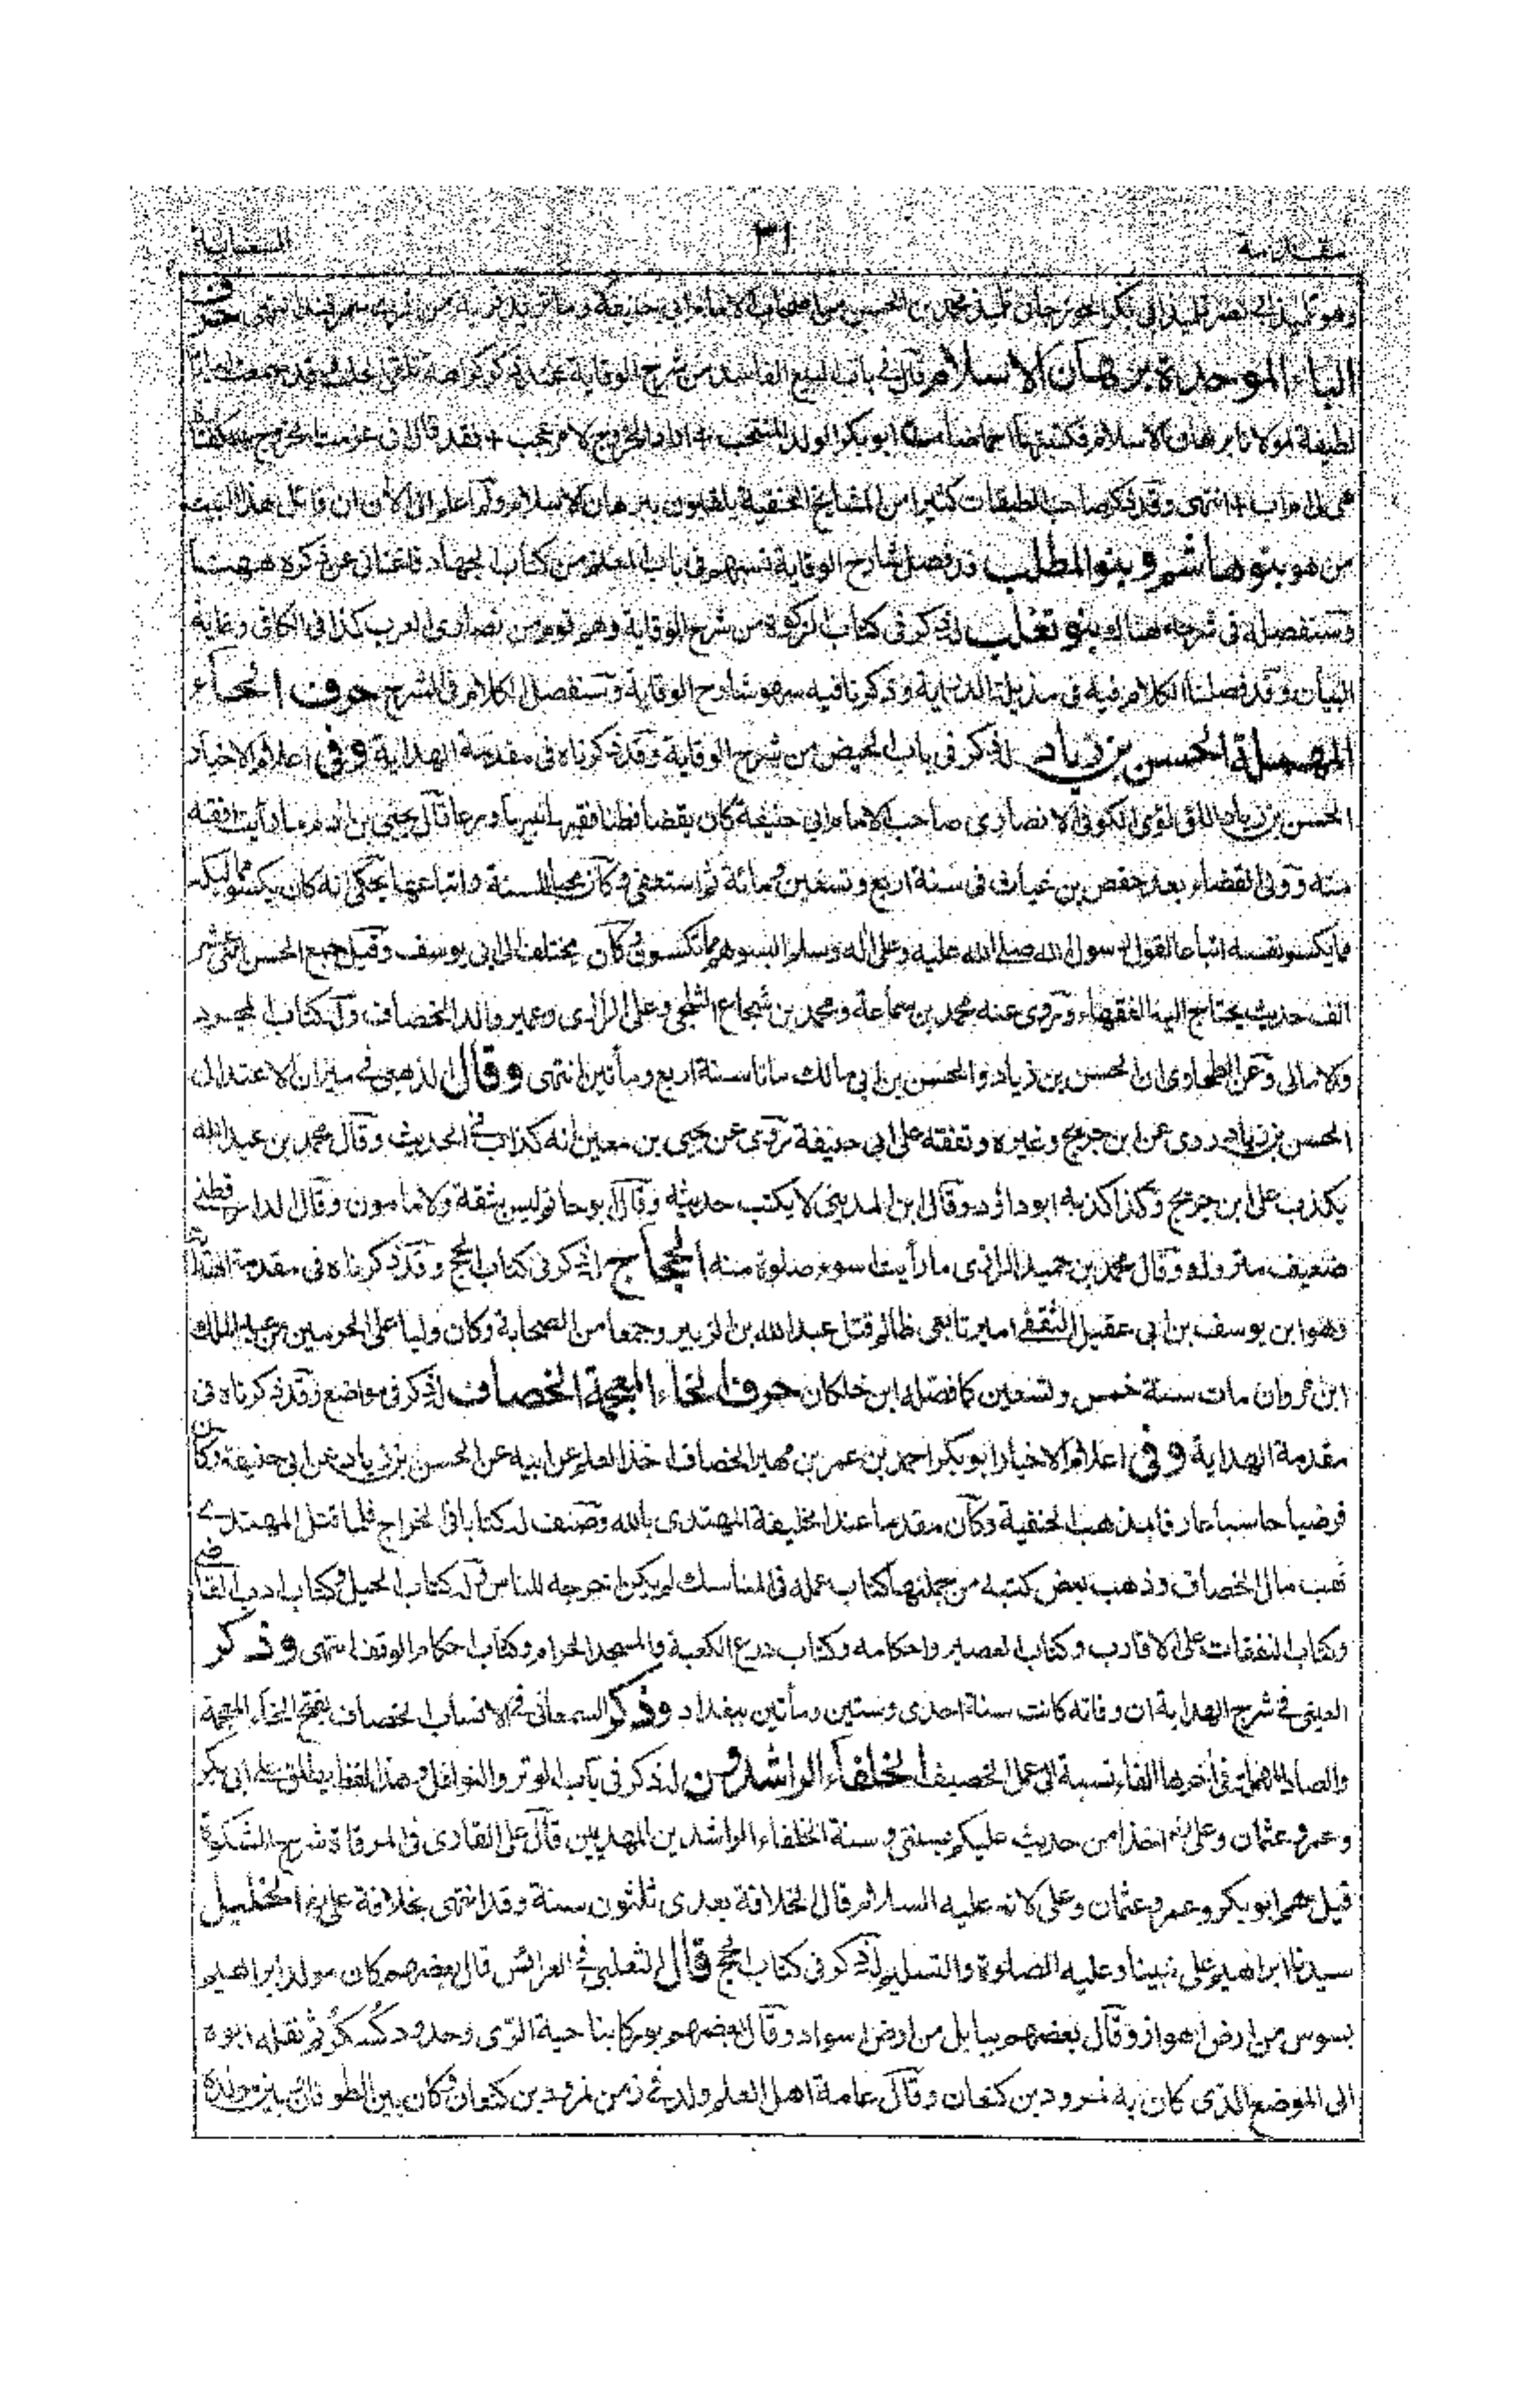 مقدمة ٣١ السعاية
وهو تلميذ ابي نصر تلميذ ابي بكر الجوزجاني تلميذ محمد بن الحسن من اصحاب الامام ابي حنيفة وماتريد قرية من قرى سمرقند انتهى حرف
الباء الموحدة برهان الاسلام قال في باب البيع الفاسد من شرح الوقاية عند ذكر كراهة تلقي الجلب وقد سمعت
لطيفة لمولانا برهان الاسلام فكتبتها ابو بكر الولد المنتخب + اراد الخروج لامر عجب + فقد قال اني عزمت الخروج لكفتارة
هي لي ام اب + انتهى وقد ذكر صاحب الطبقات كثيرا من المشايخ الحنفية يلقبون ببرهان الاسلام ولم اعلم الى الآن ان قائل هذا البيت
من هو بنو هاشم وبنو المطلب قد فصل شارح الوقاية نسبهم في باب المغنم من كتاب الجهاد فاغنانا عن ذكره ههنا
وسنفصله في شرحه هناك بنو تغلب ذكر في كتاب الزكوة من شرح الوقاية وهم قوم من نصارى العرب كذا في الكافي وغاية
البيان وقد فصلنا الكلام فيه في مذيلة الدراية وذكرنا فيه سهو شارح الوقاية وسنفصل الكلام في الشرح حرف الحاء
المهملة الحسن بن زياد ذكر في باب الحيض من شرح الوقاية وقد ذكرناه في مقدمة الهداية وفي اعلام الاخيار
الحسن بن زياد اللؤلؤي الكوفي الانصاري صاحب الامام ابي حنيفة كان يقضا فطنا فقيها نبيها ورعا قال يحيى بن آدم ما رأيت افقه
منه وولى القضاء بعد حفص بن غياث في سنة اربع وتسعين ومائة ثم استعفى وكان محبا للسنة واتباعها يحكى انه كان يكسو مماليكه
مما يكسو نفسه اتباعا لقول رسول الله صلى الله عليه وعلى آله وسلم البسوهم مما تكسون كان يختلف الى ابي يوسف وقيل جمع الحسن اثني عشر
الف حديث يحتاج اليها الفقهاء وروى عنه محمد بن سماعة ومحمد بن شجاع الثلجي وعلي الرازي وعمير والد الخصاف وله كتاب المجرد
والامالي وعن الطحاوي ان الحسن بن زياد والحسن بن ابي مالك ماتا سنة اربع ومأتين انتهى وقال الذهبي في ميزان الاعتدال
الحسن بن زياد روى عن ابن جريج وغيره وتفقه على ابي حنيفة روى عن يحيى بن معين انه كذاب في الحديث وقال محمد بن عبد الله
يكذب على ابن جريج وكذا كذبه ابو داؤد وقال ابن المديني لا يكتب حديثه وقال ابو حاتم ليس بثقة ولا مامون وقال الدارقطني
ضعيف متروك وقال محمد بن حميد الرازي ما رأيت اسوء صلوة منه الحجاج ذكر في كتاب الحج وقد ذكرناه في مقدمة الهداية
وهو ابن يوسف بن ابي عقيل الثقفي امير تابعي ظالم قتل عبد الله بن الزبير وجمعا من الصحابة وكان وليا على الحرمين من عبد الملك
ابن مروان مات سنة خمس وتسعين كما فصله ابن خلكان حرف الخاء المعجمة الخصاف ذكر في مواضع وقد ذكرناه في
مقدمة الهداية وفي اعلام الاخيار ابو بكر احمد بن عمر بن مهير الخصاف اخذ العلم عن ابيه عن الحسن بن زياد عن ابي حنيفة وكان
فرضيا حاسبا عارفا بمذهب الحنفية وكان مقدما عند الخليفة المهتدي بالله وصنف له كتابا في الخراج فلما قتل المهتدي
نهب مال الخصاف وذهب بعض كتبه من جملتها كتاب عمله في المناسك لم يكن اخرجه للناس وله كتاب الحيل وكتاب ادب القاضي
وكتاب النفقات على الاقارب وكتاب العصير واحكامه وكتاب درع الكعبة والمسجد الحرام وكتاب احكام الوقف انتهى وذكر
العيني في شرح الهداية ان وفاته كانت سنة احدى وستين ومأتين ببغداد وذكر السمعاني في الانساب الخصاف بفتح الخاء المعجمة
والصاد المهملة في آخرها الفاء نسبة الى عمل الخصيف الخلفاء الراشدون ذكر في باب الوتر والنوافل وهذا اللفظ يطلق على ابي بكر
وعمر وعثمان وعلي اخذا من حديث عليكم بسنتي وسنة الخلفاء الراشدين المهديين قال علي القاري في المرقاة شرح المشكوة
قيل هم ابو بكر وعمر وعثمان وعلي لانه عليه السلام قال الخلافة بعدي ثلثون سنة وقد انتهى بخلافة علي الخليل
سيدنا ابراهيم على نبينا وعليه الصلوة والتسليم ذكر في كتاب الحج قال الثعلبي في العرائس قال بعضهم كان مولد ابراهيم
بسوس من ارض اهواز وقال بعضهم ببابل من ارض سواد وقال بعضهم بوركا بناحية الري وحدود كسكر ثم نقله ابوه
الى الموضع الذي كان به نمرود بن كنعان وقال عامة اهل العلم ولد في زمن نمرود بن كنعان وكان بين الطوفان وبين مولده